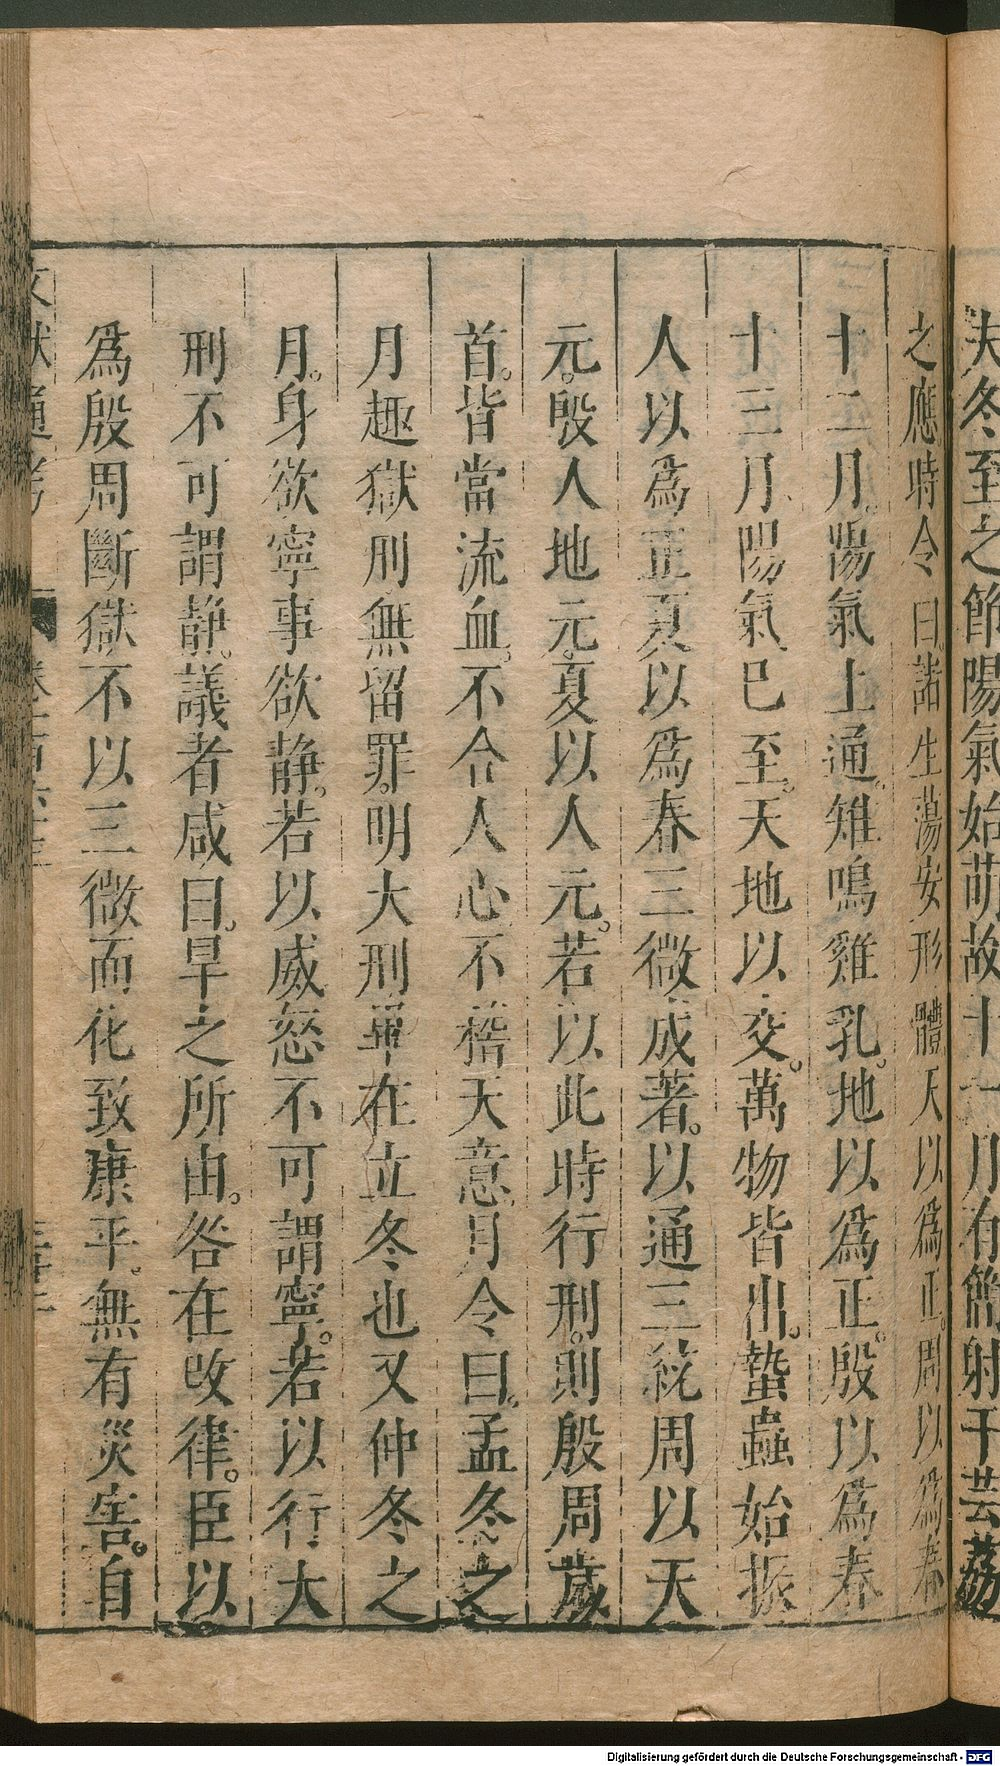 夫冬至之節陽氣始萌故十一月有蘭射干芸荔
之應時令曰諸生蕩安形體天以爲正周以爲春
十二月陽氣上通雉鳴雞乳地以爲正殷以爲春
十三月陽氣巳至天地以交萬物皆出蟄蟲始振
人以爲正夏以爲春三微成著以通三統周以天
元殷人地元夏以人元若以此時行刑則殷周歲
首皆當流血不合人心不稽天意月令曰孟冬之
月趣獄刑無留罪明大刑畢在立冬也又仲冬之
月身欲寧事欲静若以威怒不可謂寧若以行大
刑不可謂静議者咸曰旱之所由咎在改律臣以
爲殷周斷獄不以三微而化致康平無有災害自
文獻通考 卷一百六十三
Digitalisierung gefördert durch die Deutsche Forschungsgemeinschaft - DFG